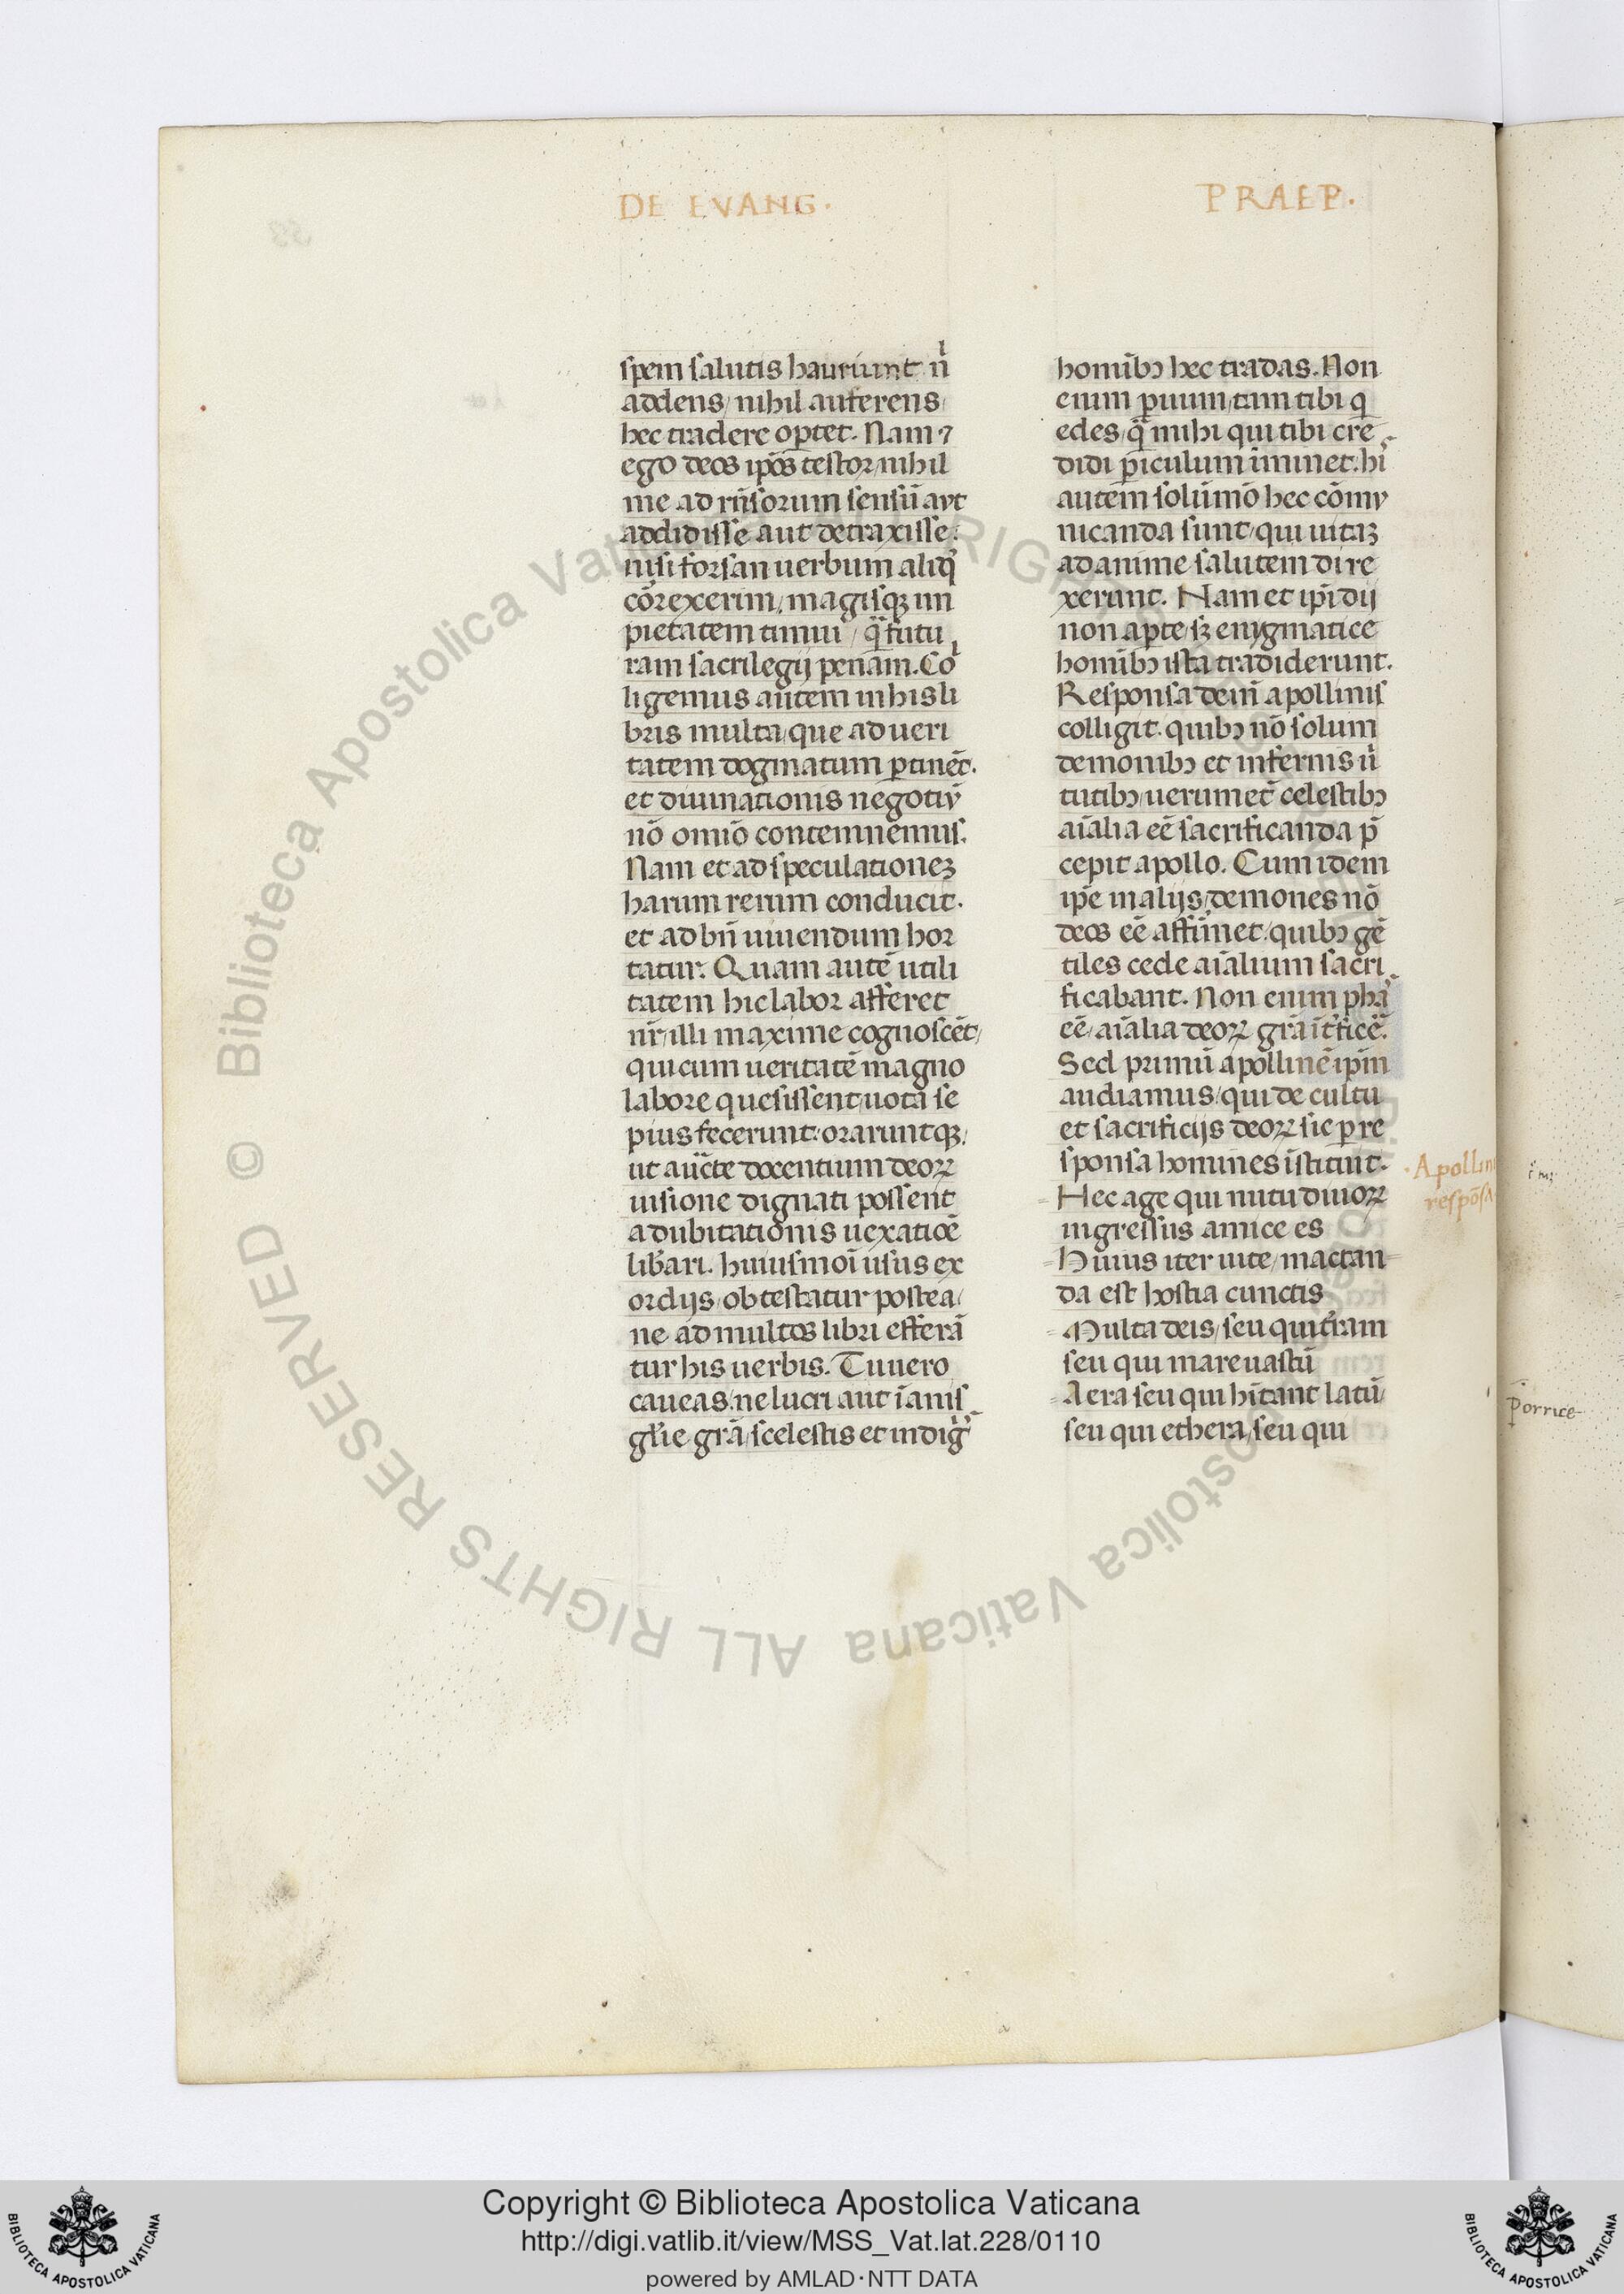 DE EVANG.
PRAEP.
spem salutis hauriunt n̉
addens/ nihil auferens/
hec tradere oꝑtet. Nam ⁊
ego deos ip̄os testor/ nihil
me ad rn̄sorum sensū avt
addidisse aut detraxisse:
nisi forsan uerbum aliq̉
cōrexerim/ magisqꝫ im
pietatem timui/ q̄ futu
ram sacrilegij penam. Co
ligemus autem in his li
bris multa/ que ad ueri
tatem dogmatum ꝑtinēt.
et diuinationis negotiv̄
nō omīo contemnemus.
Nam et ad speculationeꝫ
harum rerum conducit.
et ad bn̄ uiuendum hor
tatur. Quam autē utili
tatem hic labor afferet
nr̄/ illi maxime cognoscēt/
qui cum ueritatē magno
labore quesissent/ uota se
pius fecerunt: oraruntqꝫ/
ut aūcte docentium deoꝝ
uisione dignati possent
a dubitationis uexatiōe
lib̄ari. huiusmoī usus ex
ordijs/ obtestatur postea/
ne ad multos libri efferā
tur his uerbis. Tu uero
caueas/ ne lucri aut īanis
gl̄ie grā/ scelestis et indig̉
homīb᷒ hec tradas. Non
enim ꝑuum/ tam tibi q
edes/ q̄ mihi qui tibi cre
didi ꝑiculum iminet: hi
autem solūmō hec cōmv
nicanda sunt/ qui uitaꝫ
ad anime salutem dire
xerunt. Nam et ip̄i dij
non aꝑte/ sꝫ enygmatice
homīb᷒ ista tradiderunt.
Responsa dein̄ apollinis
colligit. quib᷒ nō solum
demonib᷒ et infernis ũ
tutib᷒/ uerumet̄ celestib᷒
aīalia eē sacrificanda p̄
cepit apollo. Cum idem
ip̄e in alijs/ demones nō
deos eē affirmet/ quib᷒ gē
tiles cede aīalium sacri
ficabant. Non enim pha
eē/ aīalia deoꝝ grā īt̄ficē.
Sed primū apollinē ip̄m
audiamus/ qui de cultu
et sacrificijs deoꝝ sic ꝑ re
sponsa homines īstituit.
Hec age qui nutu diuoꝝ
ingressus amice es
Huius iter uite/ mactan
da est hostia cunctis
Multa deis/ seu qui t̄ram
seu qui mare uastū
Aera seu qui hītant latū/
seu qui ethera/ seu qui
Apollin
respōsa
porrice
Copyright © Biblioteca Apostolica Vaticana
http://digi.vatlib.it/view/MSS_Vat.lat.228/0110
powered by AMLAD·NTT DATA
BIBLIOTECA APOSTOLICA VATICANA
BIBLIOTECA APOSTOLICA VATICANA
© Biblioteca Apostolica Vaticana ALL RIGHTS RESERVED